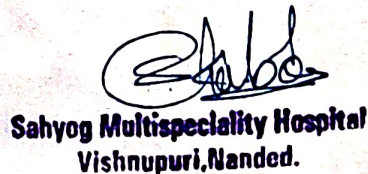 Sahyog Multispeciality Hospital
Vishnupuri,Nanded.